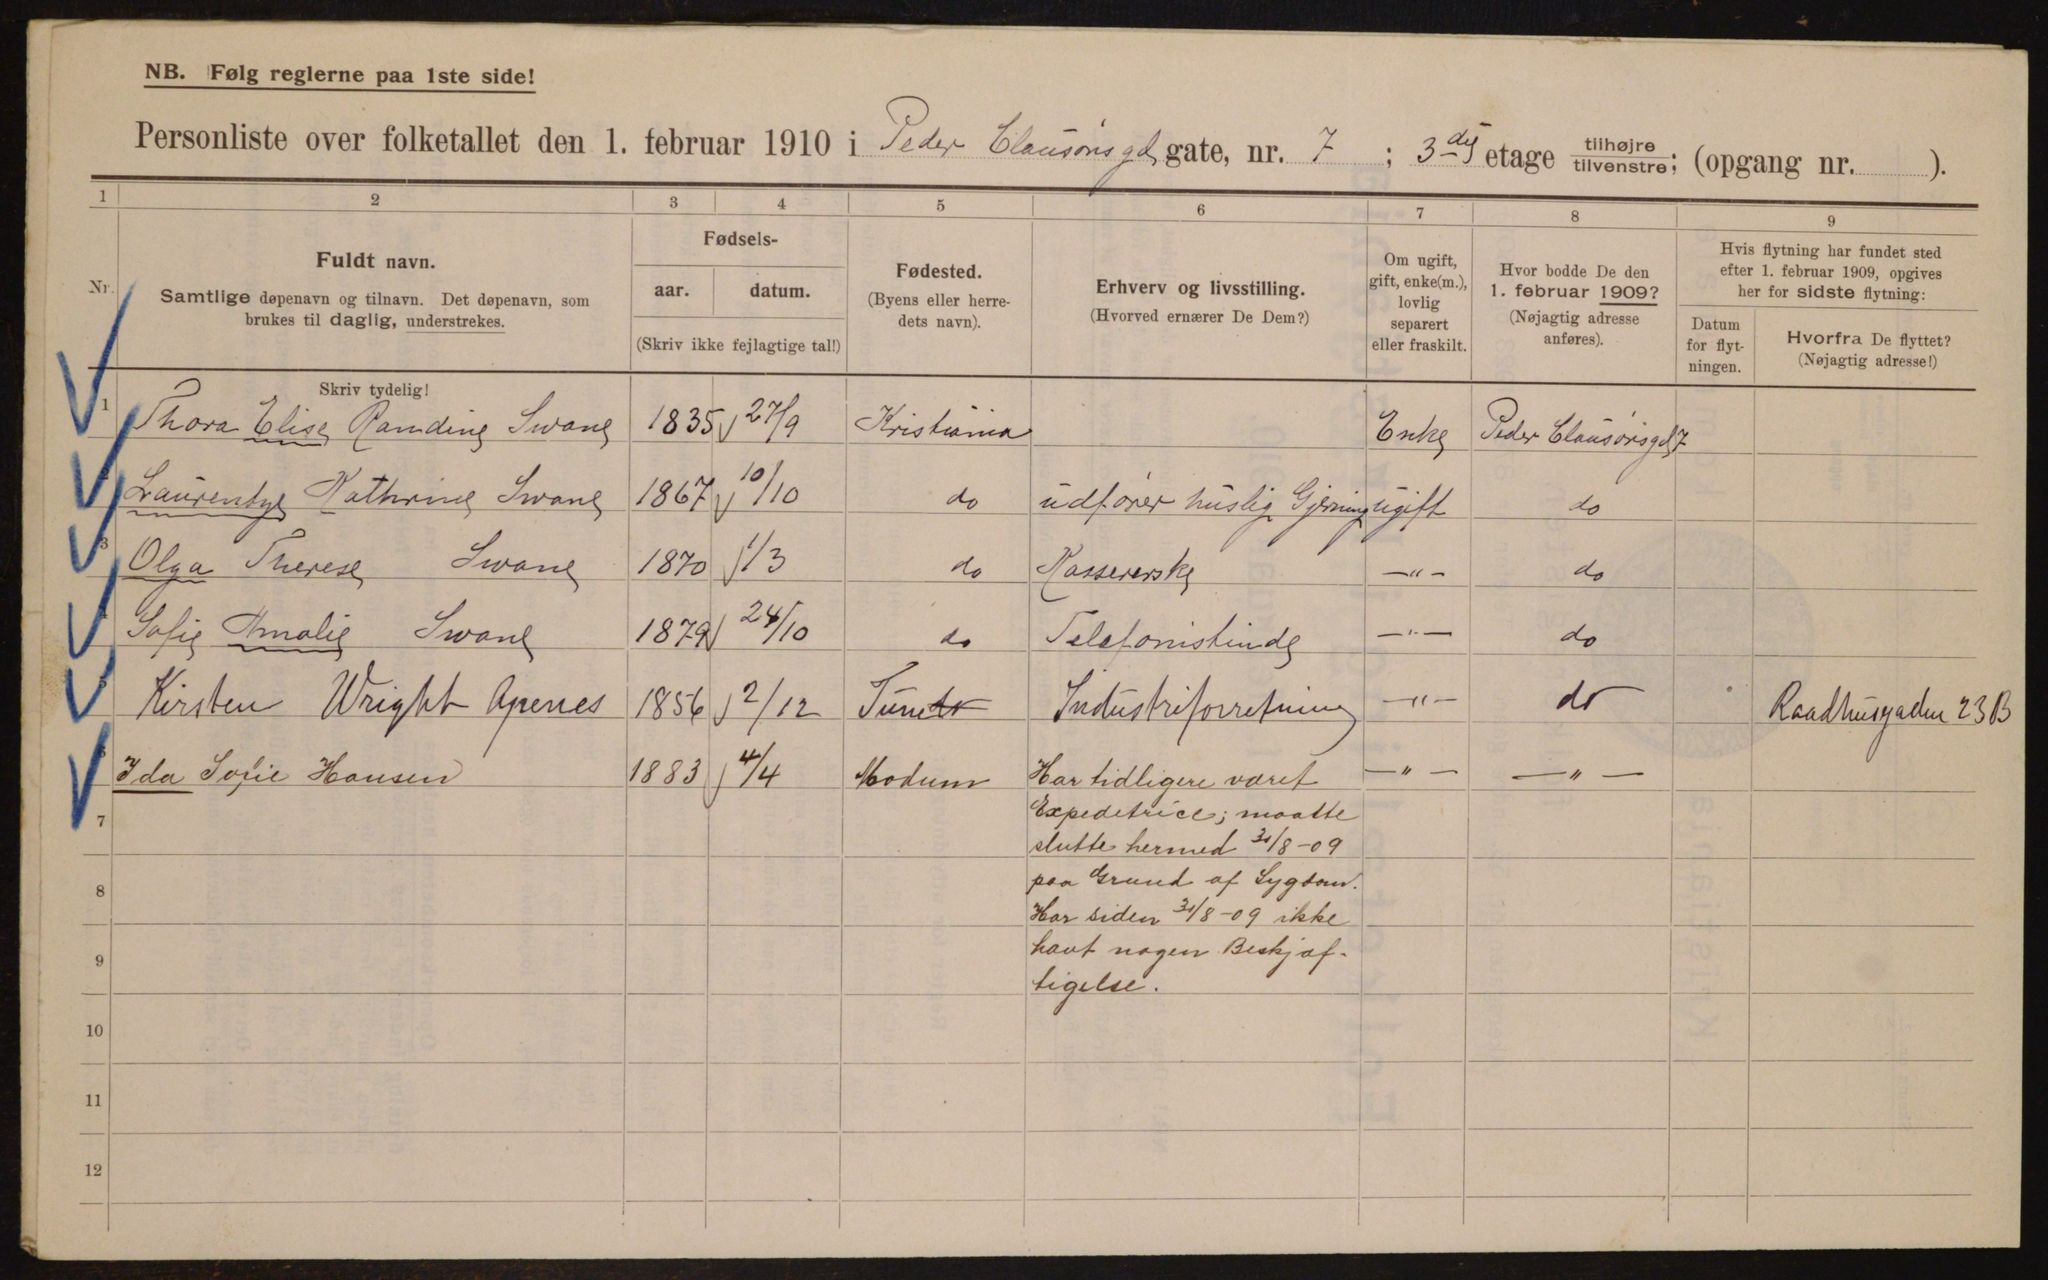 NB. Følg reglerne paa 1ste side!
Personliste over folketallet den 1. februar 1910 i Peder Claussønsgd gate, nr. 7 ; 3die etage tilhøjre tilvenstre; (opgang nr. ).
1 2 3 4 5 6 7 8 9
Nr.
Fuldt navn.
Samtlige døpenavn og tilnavn. Det døpenavn, som
brukes til daglig, understrekes.
Skriv tydelig!
Fødsels-
aar. datum.
(Skriv ikke fejlagtige tal!)
Fødested.
(Byens eller herre-
dets navn).
Erhverv og livsstilling.
(Hvorved ernærer De Dem?)
Om ugift,
gift, enke(m.),
lovlig
separert
eller fraskilt.
Hvor bodde De den
1. februar 1909?
(Nøjagtig adresse
anføres).
Hvis flytning har fundet sted
efter 1. februar 1909, opgives
her for sidste flytning:
Datum
for flyt-
ningen.
Hvorfra De flyttet?
(Nøjagtig adresse!)
1 Thora Elise Randine Swane 1835 27/9 Kristiania Enke Peder Claussønsgd 7
2 Laurentze Kathrine Swane 1867 10/10 do udfører huslig Gjerning ugift do
3 Olga Therese Swane 1870 1/3 do Kassererske —"— do
4 Sofie Amalie Swane 1879 24/10 do Telefonistinde —"— do
5 Kirsten Wright Apenes 1856 2/12 Tune do Industriforretning —"— do Raadhusgaden 23B
6 Ida Sofie Hansen 1883 4/4 Modum Har tidligere været —"— —"—
7 Expeditrice; maatte
slutte hermed 31/8-09
8 paa Grund af Sygdom.
Har siden 31/8-09 ikke
9 havt nogen Beskjæf-
tigelse.
10
11
12